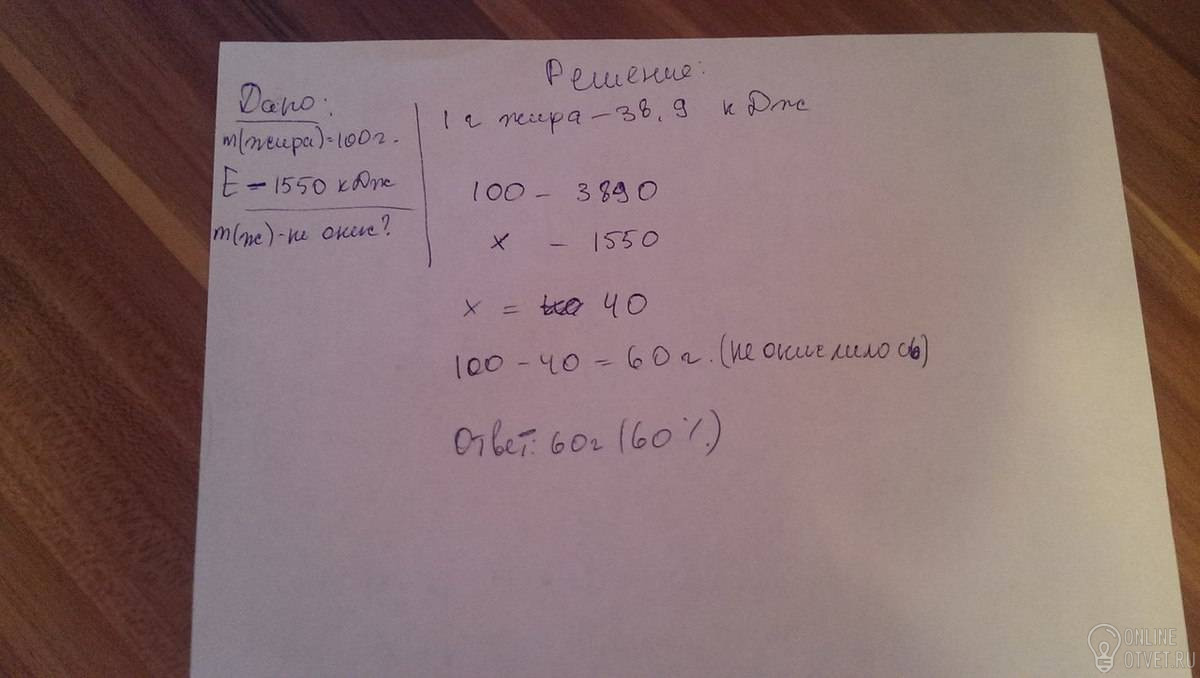 Решение:
Дано:
m(жира)=100г.
E - 1550 кДж
m(ж)-не окис?
1 г жира - 38,9 кДж
100 - 3890
x - 1550
x = 40
100 - 40 = 60 г. (не окислилось)
Ответ: 60г (60%)
ONLINE
OTVET.RU